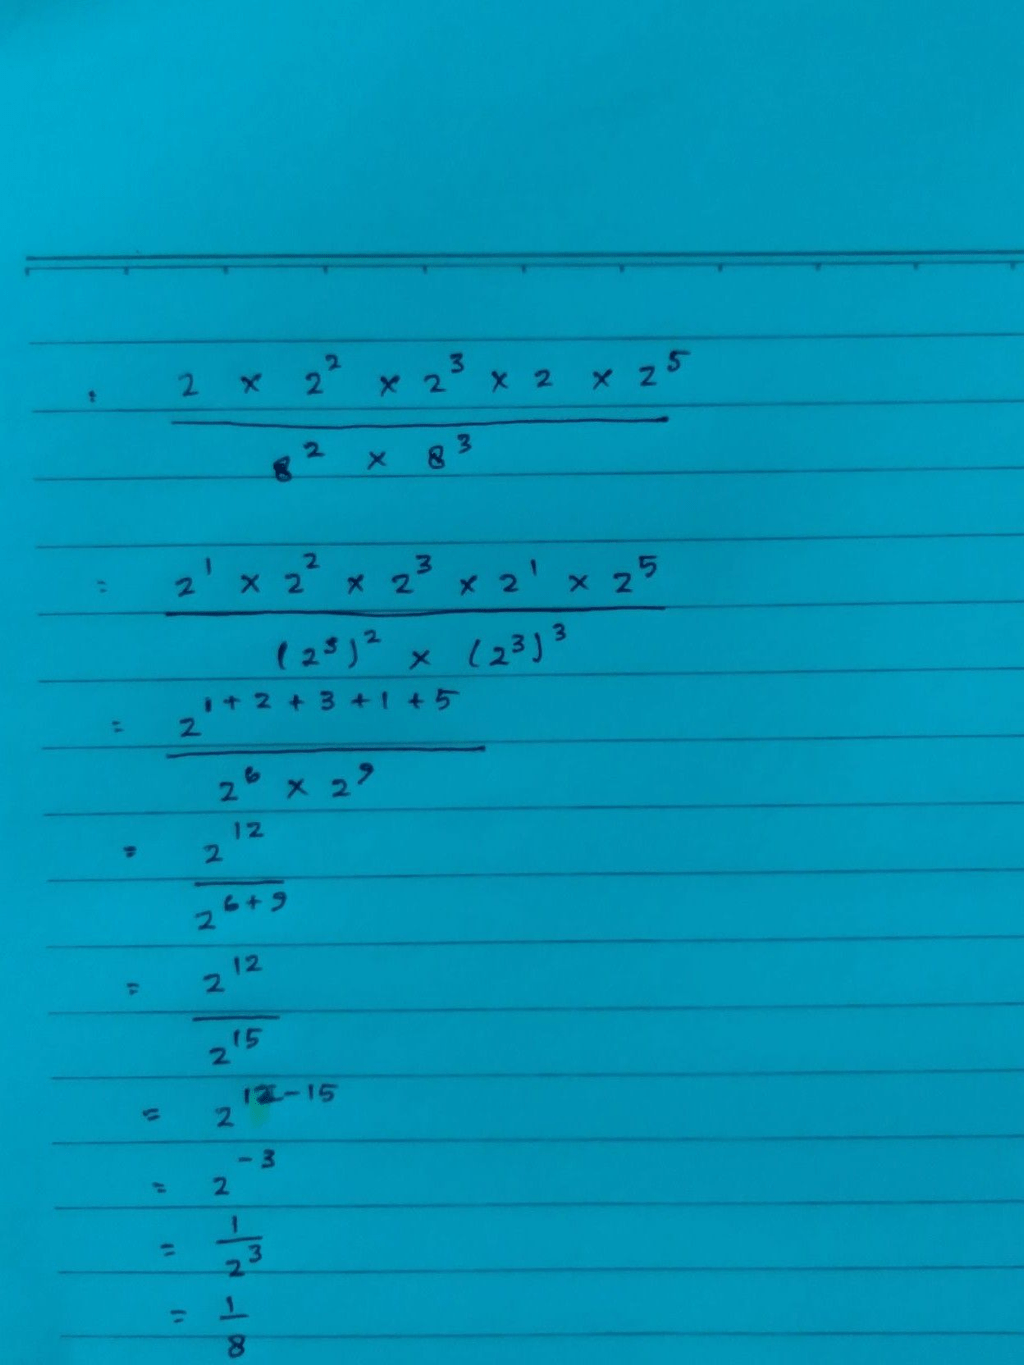 2 × 2² × 2³ × 2 × 2⁵
8² × 8³
= 2¹ × 2² × 2³ × 2¹ × 2⁵
(2³)² × (2³)³
= 2¹⁺²⁺³⁺¹⁺⁵
2⁶ × 2⁹
= 2¹²
2⁶⁺⁹
= 2¹²
2¹⁵
= 2¹²⁻¹⁵
= 2⁻³
= 1
2³
= 1
8